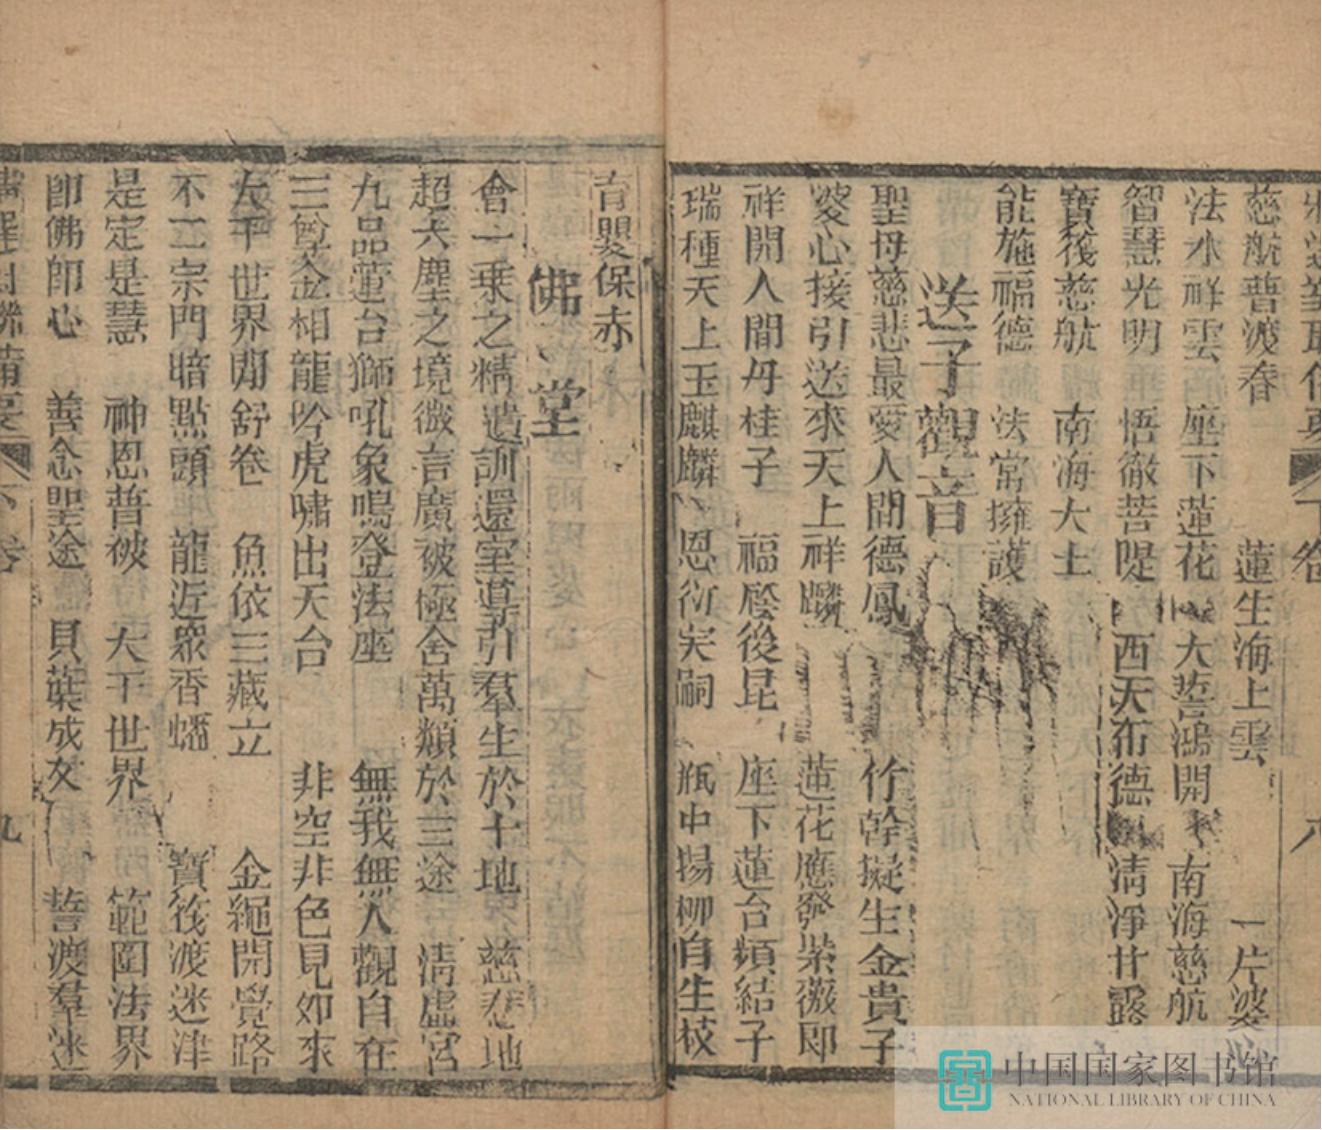 下卷
慈航普渡春 蓮生海上雲 一片婆心
法水祥雲 座下蓮花 大誓鴻開 南海慈航
智慧光明 悟徹菩提 西天布德 清淨甘露
寶筏慈航 南海大士
能施福德 法常擁護
送子觀音
聖母慈悲最愛人間德鳳 竹幹擬生金貴子
婆心接引送來天上祥麟 蓮花應發紫薇郎
祥開人間丹桂子 福廕後昆 座下蓮台頻結子
瑞種天上玉麒麟 恩衍宋嗣 瓶中揚柳自生枝
育嬰保赤
佛堂
會一乗之精遺訓還室導引羣生於十地 慈悲地
超六塵之境微言廣被極舍萬類於三途 清虛宮
九品蓮台獅吼象鳴登法座 無我無人觀自在
三尊金相龍吟虎嘯出天台 非空非色見如來
大千世界閒舒卷 魚依三藏立 金繩開覺路
不二宗門暗點頭 龍近衆香蟠 寶筏渡迷津
是定是慧 神恩普被 大千世界 範圍法界
卽佛卽心 善念聖途 貝葉成文 誓渡羣迷
下卷 九
中国国家图书馆
NATIONAL LIBRARY OF CHINA